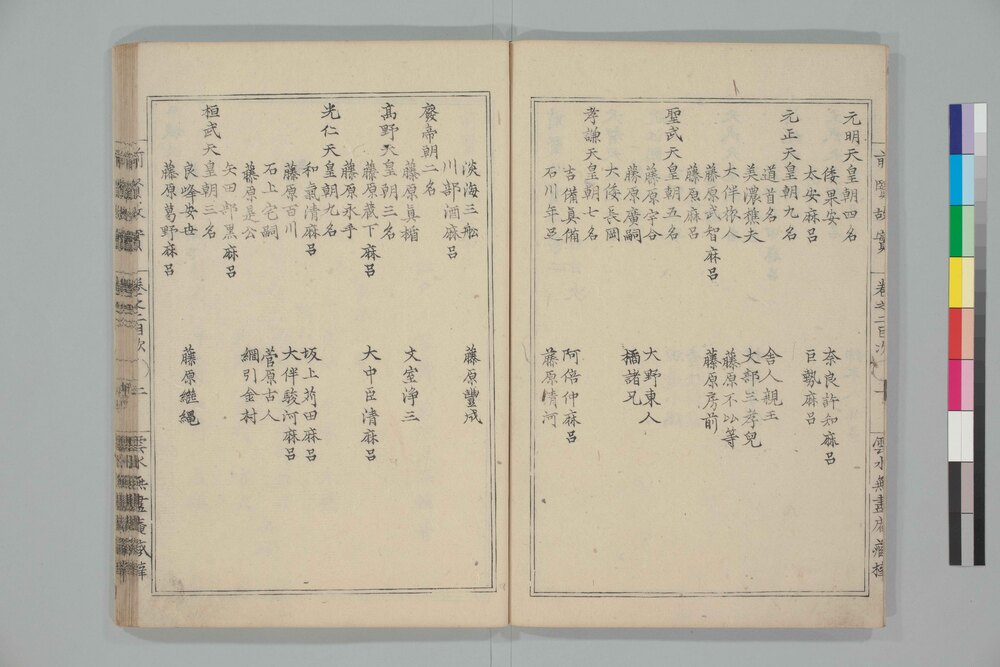 元明天皇朝四名
倭果安
奈良許知麻呂
太安麻呂
巨勢麻呂
元正天皇朝九名
道首名
舎人親王
美濃樵夫
丈部三孝兒
大伴依人
藤原不比等
藤原武智麻呂
藤原房前
藤原麻呂
聖武天皇朝五名
藤原宇合
大野東人
藤原廣嗣
橘諸兄
大倭長岡
孝謙天皇朝七名
吉備真備
阿倍仲麻呂
石川年足
藤原清河
淡海三舩
藤原豐成
川部酒麻呂
廢帝朝二名
藤原真楯
文室浄三
高野天皇朝三名
藤原蔵下麻呂
大中臣清麻呂
藤原永手
光仁天皇朝九名
和氣清麻呂
坂上苅田麻呂
藤原百川
大伴駿河麻呂
石上宅嗣
菅原古人
藤原是公
綱引金村
矢田部黒麻呂
桓武天皇朝三名
良峰安世
藤原継縄
藤原葛野麻呂
前賢故實
卷之二目次
一
雲水無盡庵藏梓
前賢故實
卷之二目次
二
雲水無盡庵藏梓